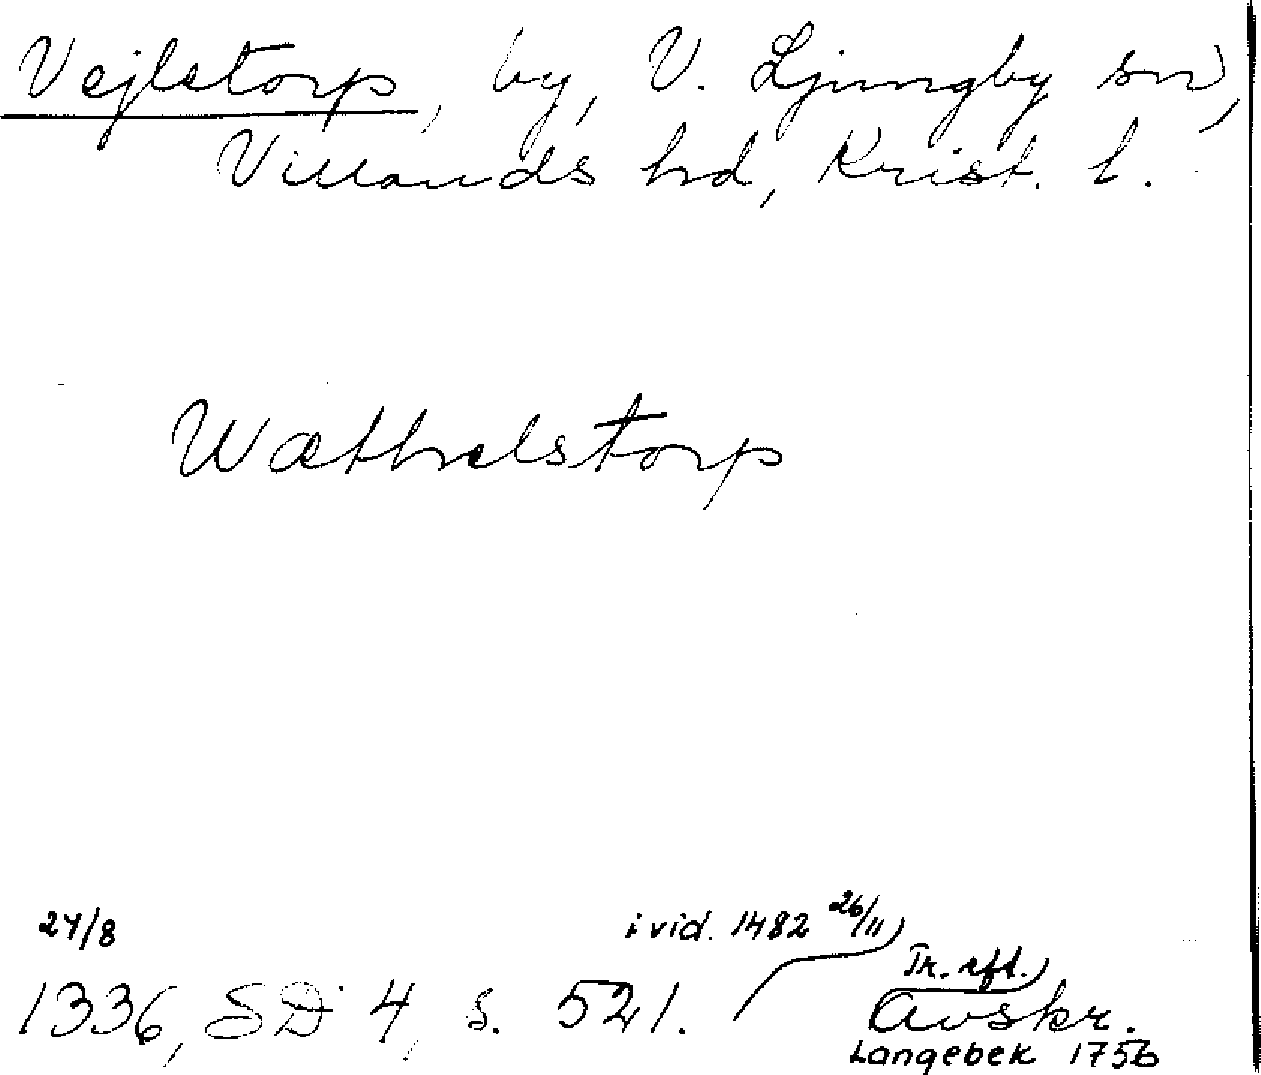 Vejlstorp, by, V. Ljungby sn,
Villands hd, Krist. l.
Wæthelstorp
24/8
i vid. 1482 26/11
Tr. eft.
1336, SD 4, s. 521. Avskr.
Langebek 1756